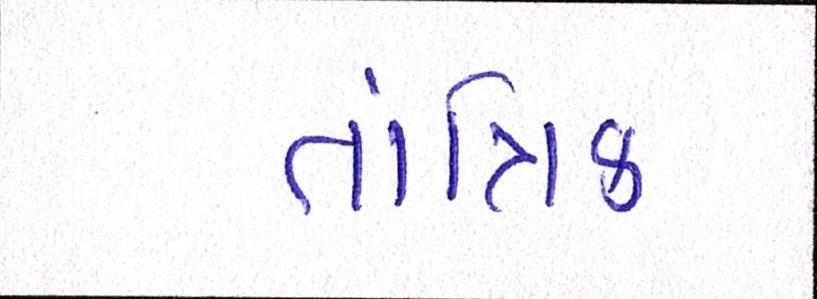 તાંત્રિક